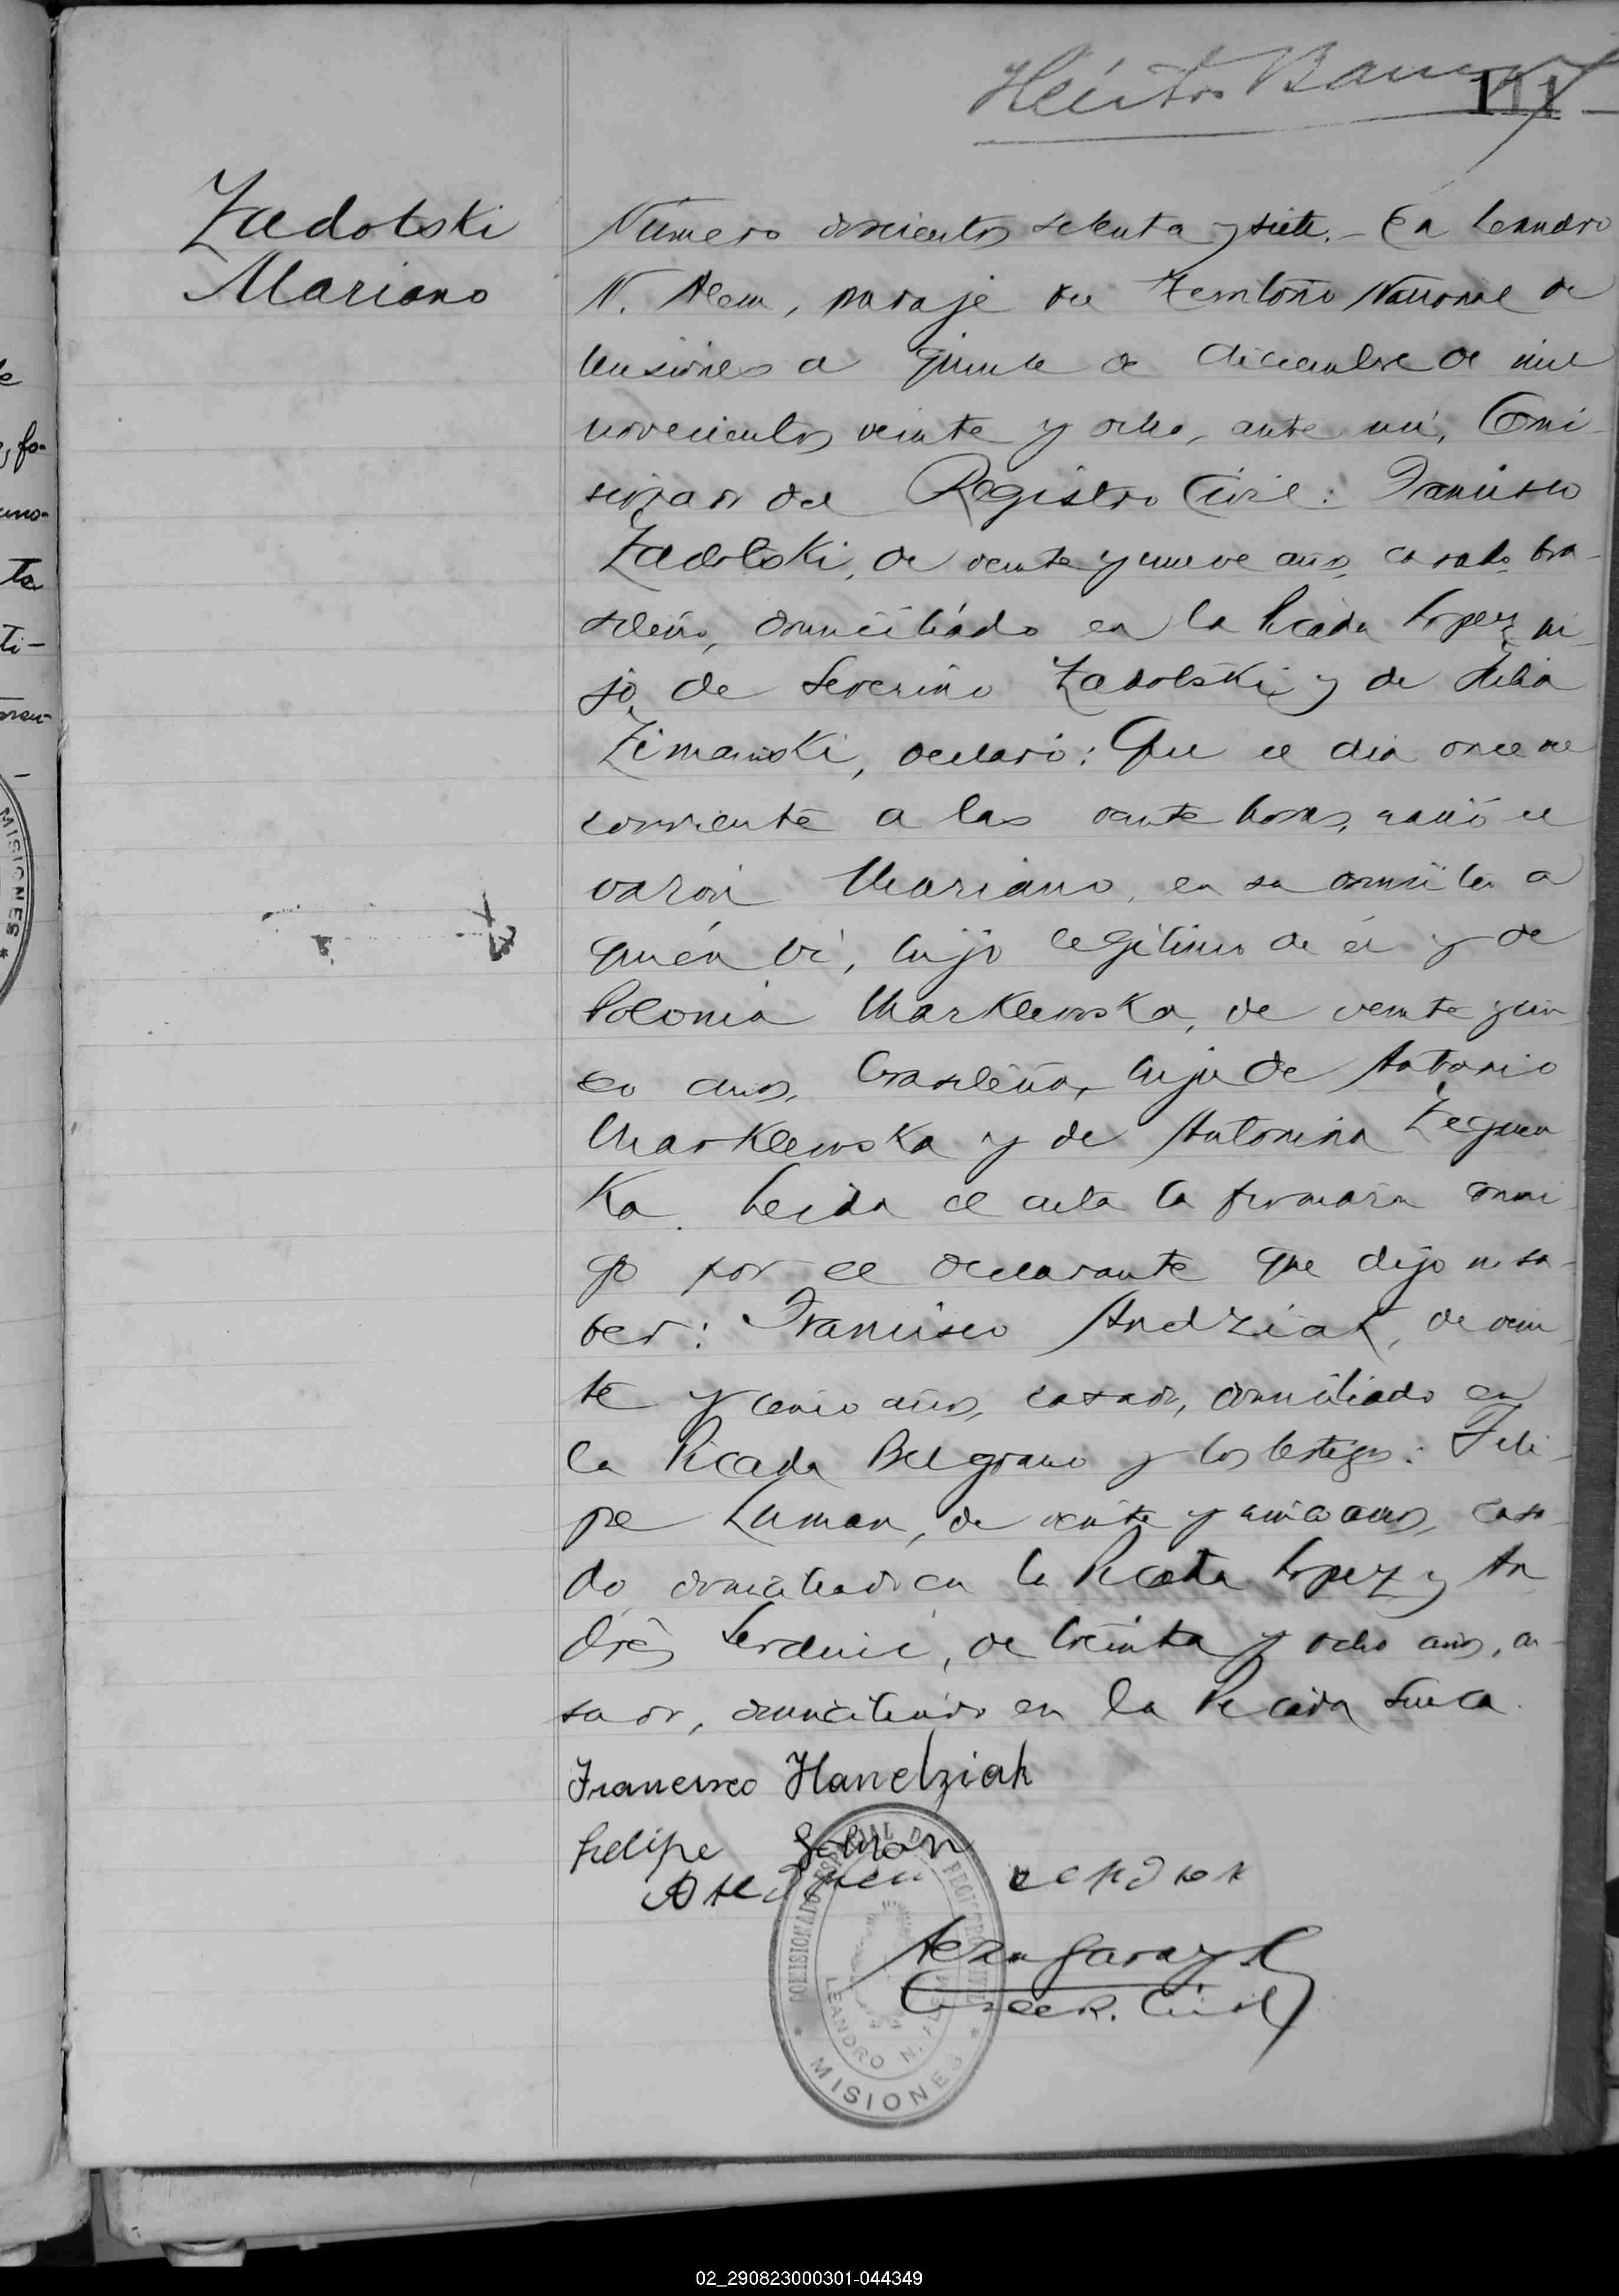 Héctor Barr
111
Zadolski
Mariano
Número doscientos setenta y siete.- En Leandro
N. Alem, paraje del Territorio Nacional de
Misiones a quince de diciembre de mil
novecientos veinte y ocho, ante mí, Comi-
sionado del Registro Civil: Francisco
Zadolski, de veinte y nueve años, casado, bra-
sileño, domiciliado en la Picada Lopez, hi-
jo de Severino Zadolski y de Julia
Zimanski, declaró: Que el día once del
corriente a las veinte horas, nació el
varón Mariano, en su domicilio a
quién ví, hijo legítimo de él y de
Polonia Marklewska, de veinte y cin-
co años, brasileña, hija de Antonio
Marklewska y de Antonina
ka. Leida el acta la firmaron conmi-
go por el declarante que dijo no sa-
ber: Francisco Andziak, de vein-
te y cinco años, casado, domiciliado en
la Picada Belgrano y los testigos: Feli-
pe Laman, de veinte y cinco años, casa-
do, domiciliado en la Picada Lopez y An
drés, de treinta y ocho años, ca-
sado, domiciliado en la Picada Sueca.
Francisco Handziak
Felipe
COMISIONADO ESPECIAL DEL REGISTRO CIVIL
LEANDRO N. ALEM
* MISIONES *
R. Civil
le
fo-
uno-
ta
ti-
MISIONES *
02_290823000301-044349